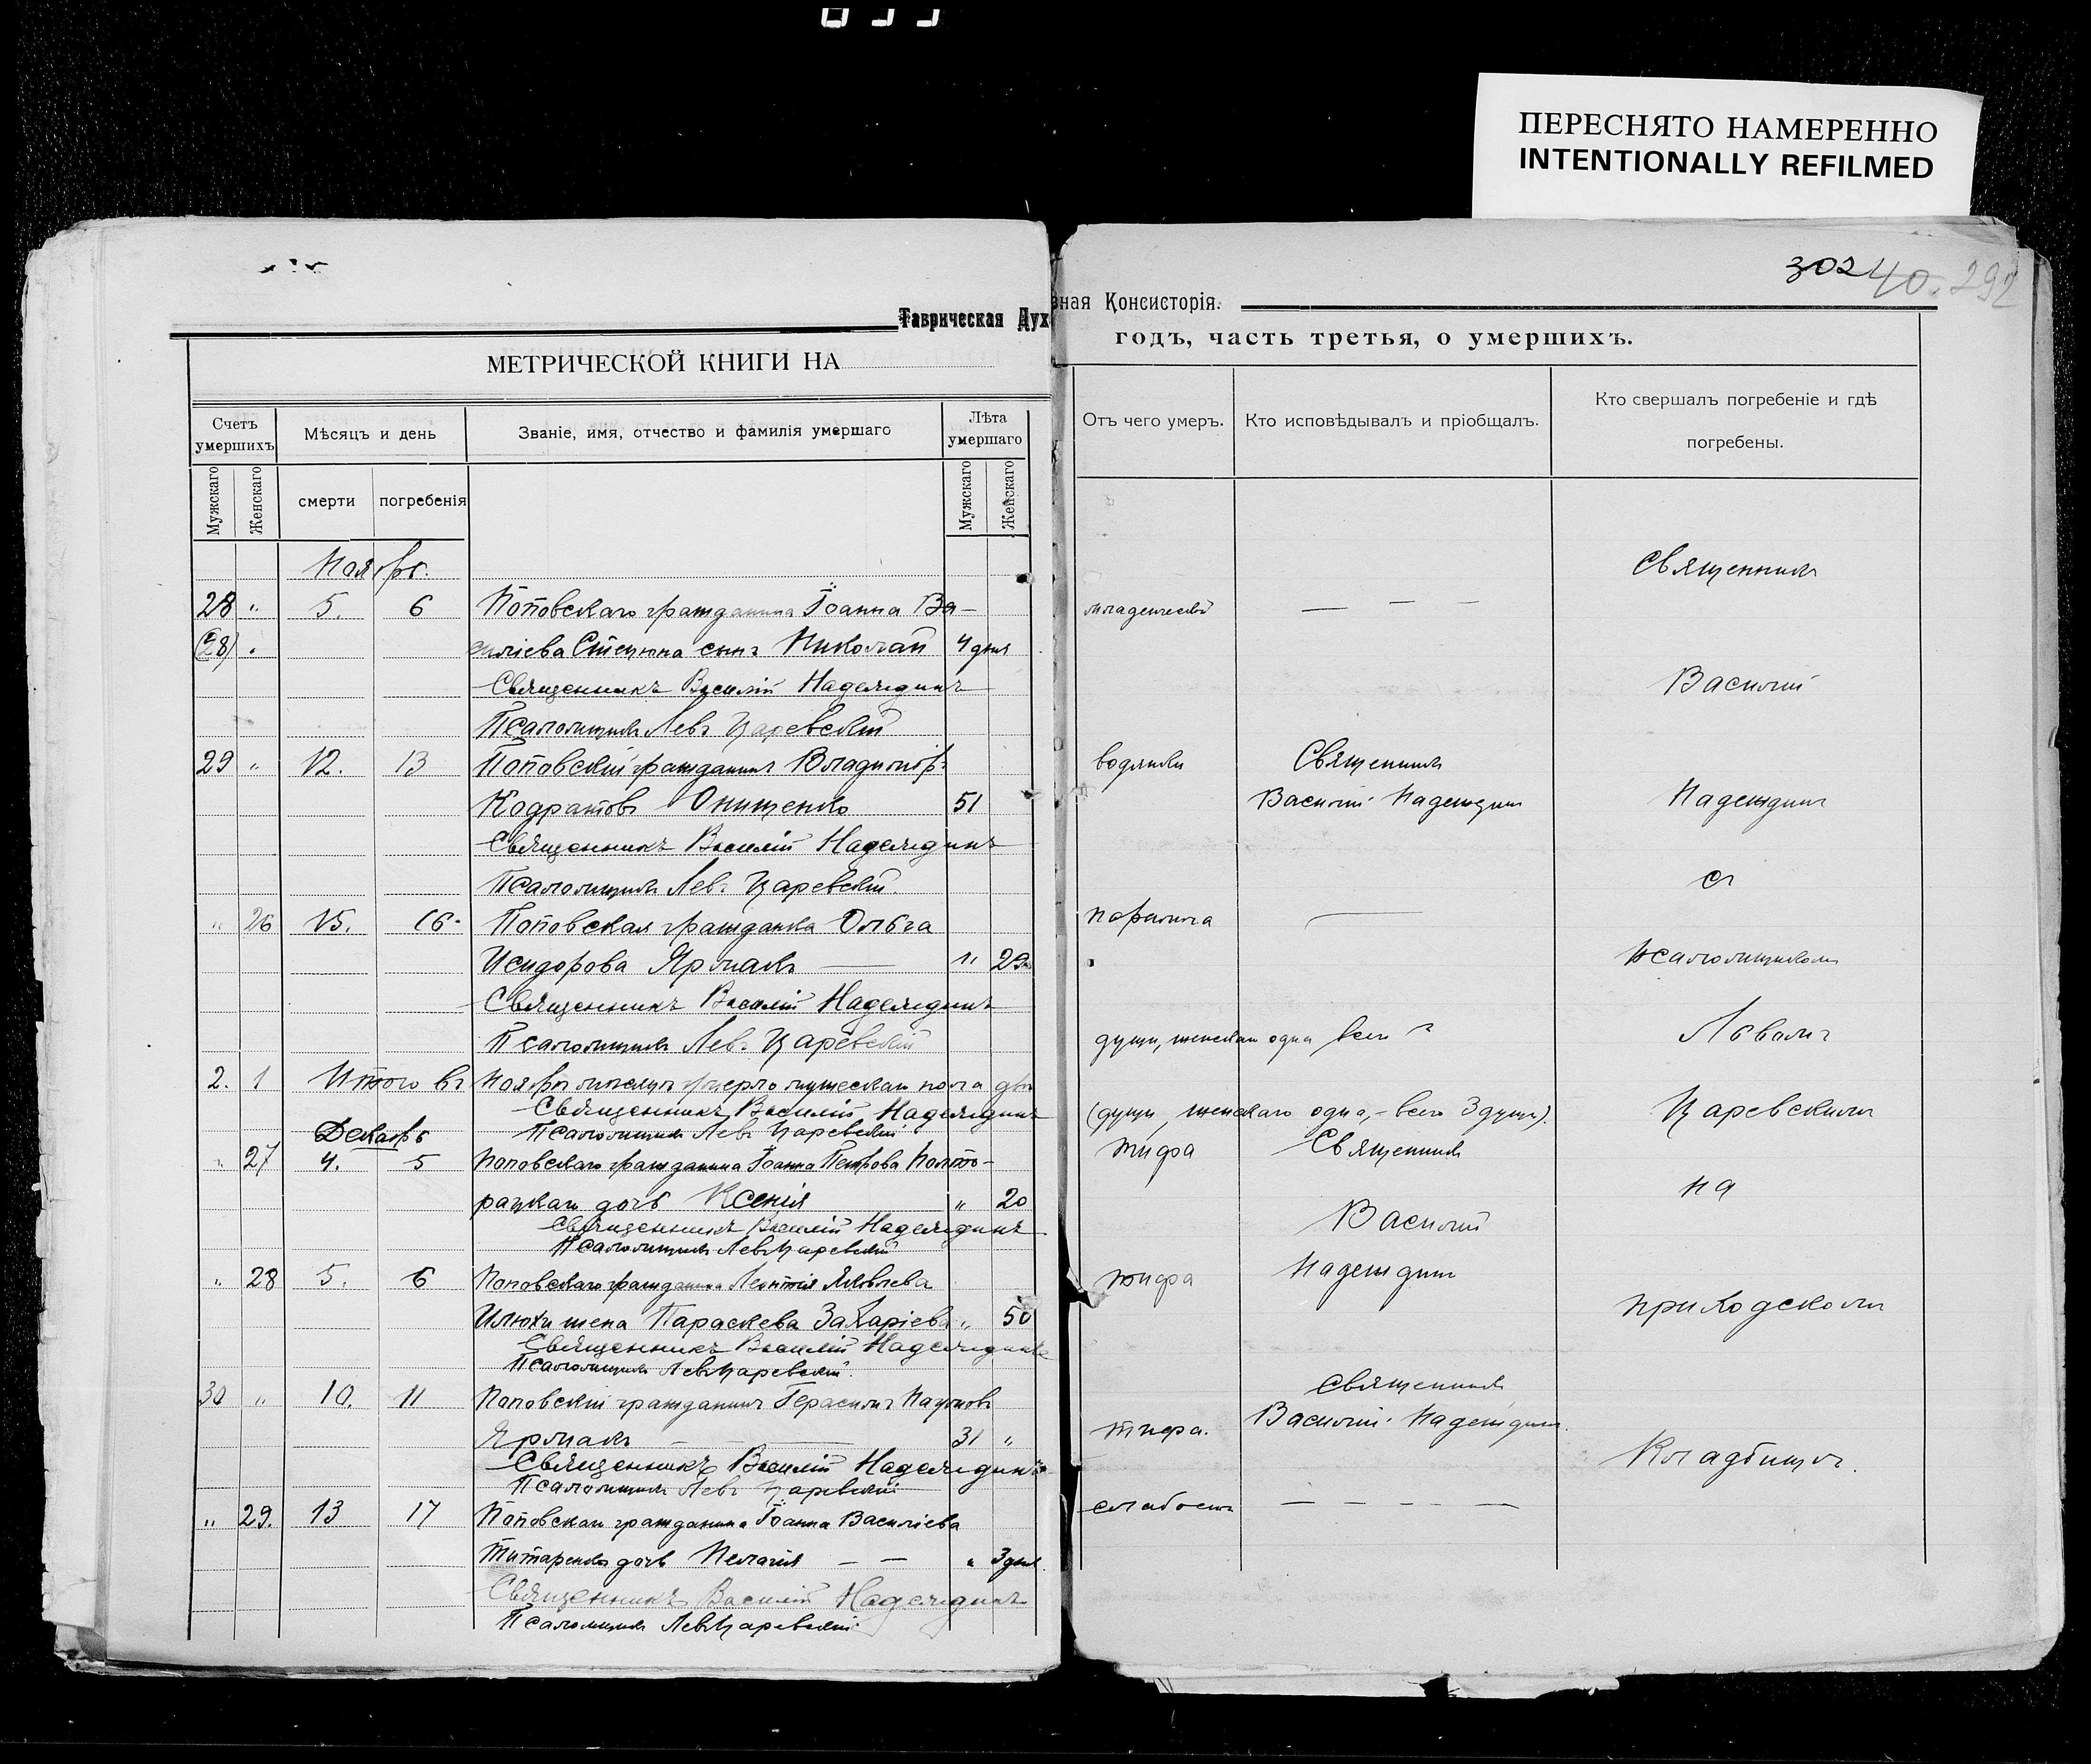 ПЕРЕСНЯТО НАМЕРЕННО
INTENTIONALLY REFILMED
302 40. 292
Таврическая Дух
вная Консисторія.
МЕТРИЧЕСКОЙ КНИГИ НА
годъ, часть третья, о умершихъ.
Счетъ умершихъ
Мѣсяцъ и день
Званіе, имя, отчество и фамилія умершаго
Лѣта умершаго
Отъ чего умеръ.
Кто исповѣдывалъ и пріобщалъ.
Кто свершалъ погребеніе и гдѣ
погребены.
Мужскаго
Женскаго
смерти
погребенія
Мужскаго
Женскаго
Ноябрь.
28 " 5. 6 Поповскаго гражданина Іоанна Ва-
(28) " силіева сынъ Николай 4 дня
Священникъ Василій Надеждинъ
Псаломщикъ Левъ Царевскій
29 " 12. 13 Поповскій гражданинъ Владиміръ
Кодратовъ Онищенко 51
Священникъ Василій Надеждинъ
Псаломщикъ Левъ Царевскій.
" 26 15. 16. Поповская гражданка Ольга
Исидорова Ярмакъ — " 29
Священникъ Василій Надеждинъ
Псаломщикъ Левъ Царевскій
2. 1 Итого въ Ноябрѣ мѣсяцѣ умерло мужескаго пола двѣ
Священникъ Василій Надеждинъ
Декабрь
Псаломщикъ Левъ Царевскій
" 27 4. 5 Поповскаго гражданина Іоанна Петрова
дочь Ксенія " 20
Священникъ Василій Надеждинъ
Псаломщикъ Левъ Царевскій
" 28 5. 6 Поповскаго гражданина Леонтія Яковлева
Илюхи жена Параскева Захаріева " 50
Священникъ Василій Надеждинъ
Псаломщикъ Левъ Царевскій.
30 " 10. 11 Поповскій гражданинъ Герасимъ Наумовъ
Ярмакъ — — 31 "
Священникъ Василій Надеждинъ
Псаломщикъ Левъ Царевскій
" 29. 13 17 Поповскаго гражданина Іоанна Василіева
Титаренка дочь Пелагія — — " 3 дня
Священникъ Василій Надеждинъ
Псаломщикъ Левъ Царевскій
Священникъ
— — —
Василій
водянки Священникъ
Василій Надеждинъ Надеждинъ
съ
—
псаломщикомъ
души, женскаго одна всего
Львомъ
(души, женскаго одна, — всего 3 души).
Царевскимъ
тифа Священникъ
на
Василій
тифа Надеждинъ
приходскомъ
Священникъ
тифа. Василій Надеждинъ.
Кладбищѣ.
слабости — — — — —